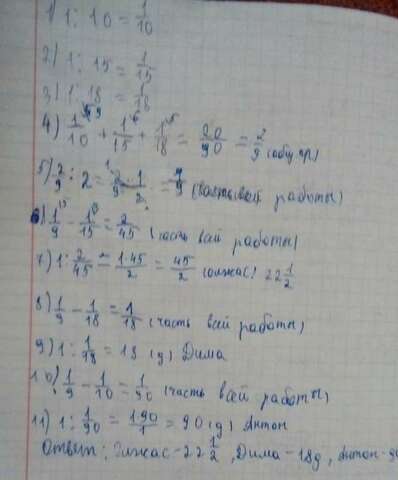 1) 1 : 10 = 1/10
2) 1 : 15 = 1/15
3) 1 : 18 = 1/18
4) 1/10 + 1/15 + 1/18 = 20/90 = 2/9 (общ.пр)
5) 2/9 : 2 = 2/9 · 1/2 = 1/9 (часть всей работы)
6) 1/9 - 1/15 = 2/45 (часть всей работы)
7) 1 : 2/45 = 1·45/2 = 45/2 (олжас) 22 1/2
8) 1/9 - 1/18 = 1/18 (часть всей работы)
9) 1 : 1/18 = 18 (д) Дима
10) 1/9 - 1/10 = 1/90 (часть всей работы)
11) 1 : 1/90 = 190/1 = 90 (д) Антон
Ответ: Олжас - 22 1/2, Дима - 18д, Антон - 9